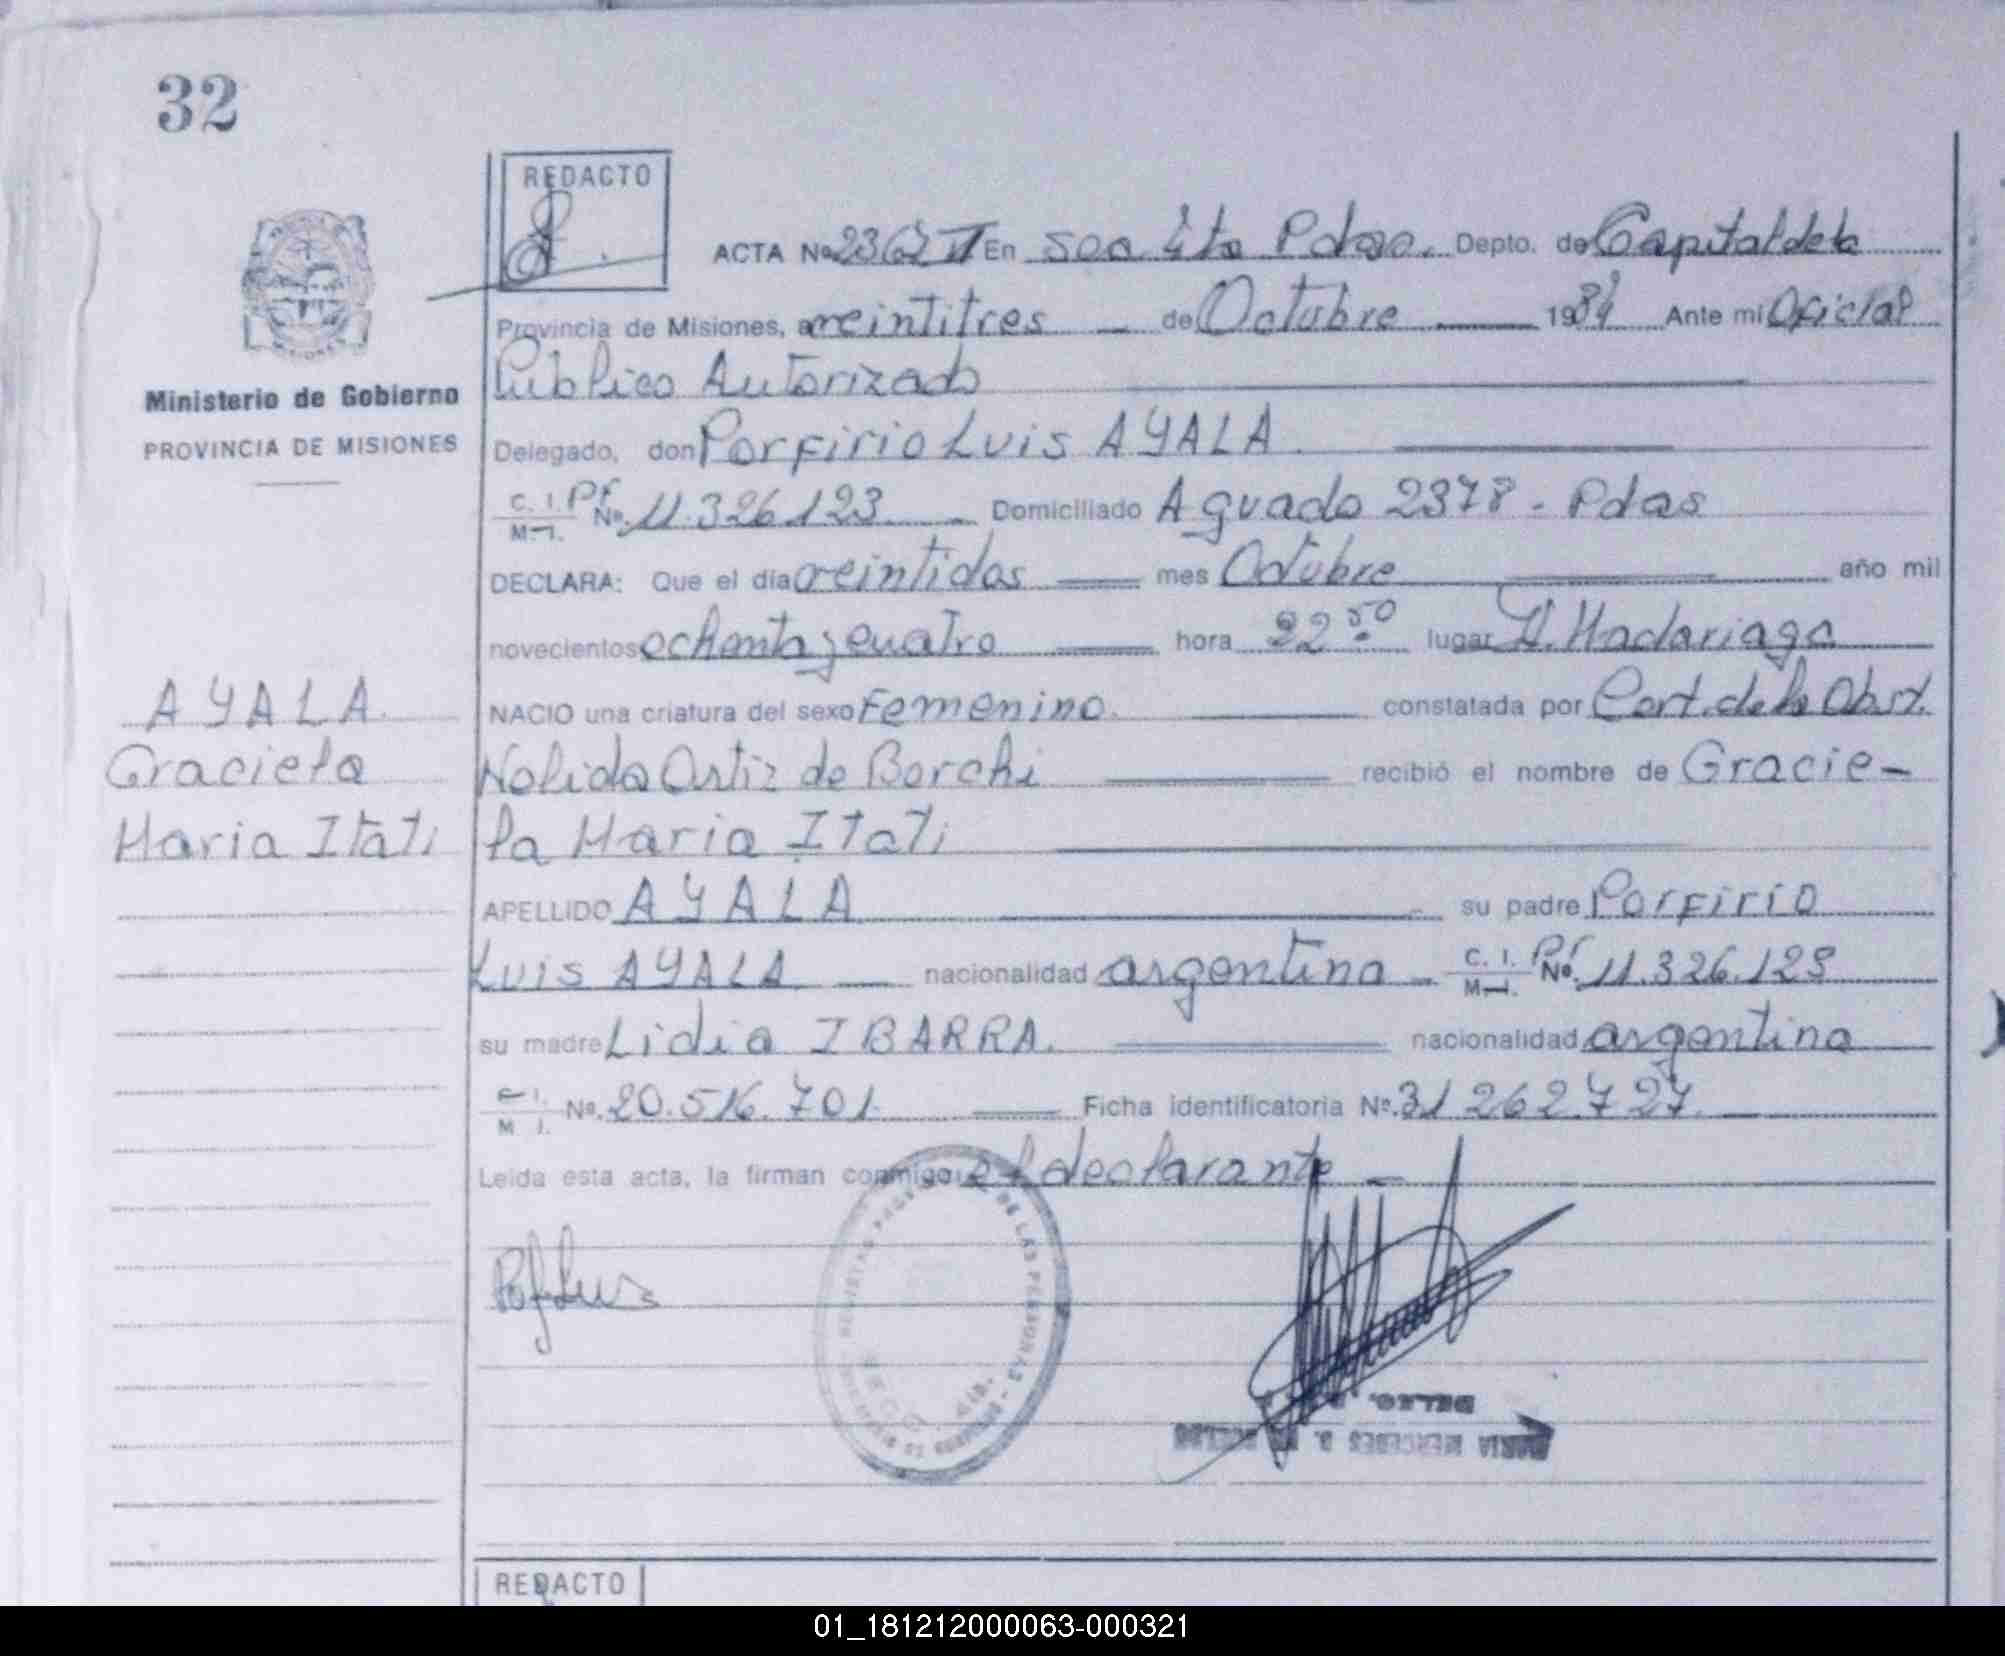 32
REDACTO
ACTA No 2362 II En Sec 4ta Pdas. Depto. de Capital de la
Provincia de Misiones, a veintitres de Octubre 1984 Ante mi Oficial
Público Autorizado
Ministerio de Gobierno
PROVINCIA DE MISIONES
Delegado, don Porfirio Luis AYALA.
C. I. Pf
M. I. Nº 11.326.123 Domiciliado Aguado 2378 - Pdas
DECLARA: Que el día veintidos mes Octubre año mil
novecientos ochenta y cuatro hora 22 50 lugar H. Madariaga
AYALA NACIO una criatura del sexo Femenino. constatada por Cert. de la Obst.
Graciela Nelida Ortiz de Borchi recibió el nombre de Gracie-
Maria Itati la Maria Itati
APELLIDO AYALA su padre Porfirio
Luis AYALA nacionalidad argentina C. I. Pf M. I. Nº 11.326.123
su madre Lidia IBARRA. nacionalidad argentina
C. I.
M. I. Nº 20.516.701 Ficha identificatoria Nº 31262727
Leída esta acta, la firman conmigo: el declarante
DE LAS PERSONAS
MARIA MERCEDES B. DE
REDACTO
01_181212000063-000321